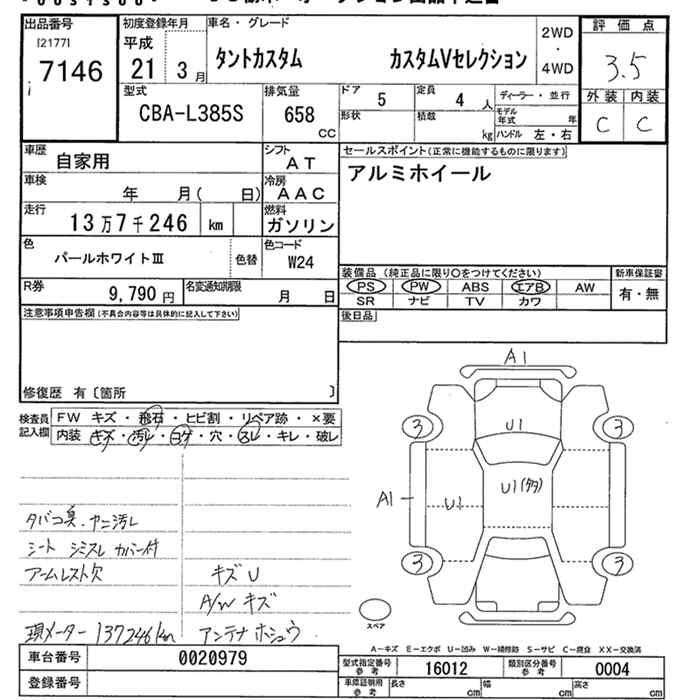 出品番号
[2177]
7146
初度登録年月
平成
21 3月
車名・グレード
タントカスタム カスタムVセレクション
2WD
・
4WD
評価点
3.5
外装 内装
C C
型式
CBA-L385S
排気量
658
CC
ドア
5
定員
4 人
ディーラー・並行
形状
積載
kg
モデル年式 年
ハンドル 左・右
車歴
自家用
シフト
AT
セールスポイント(正常に機能するものに限ります)
アルミホイール
車検
年 月( 日)
冷房
AAC
走行
13万7千246 km
燃料
ガソリン
色
パールホワイトⅢ
色替
色コード
W24
装備品 (純正品に限り〇をつけてください)
新車保証書
PS PW ABS エアB AW
有・無
SR ナビ TV カワ
R券
9,790 円
名変通知期限
月 日
後日品
注意事項申告欄(不具合内容等は具体的に記入して下さい)
修復歴 有〔箇所 〕
検査員記入欄
FW キズ・飛石・ヒビ割・リペア跡・×要
内装 キズ・汚レ・コゲ・穴・スレ・キレ・破レ
タバコ臭、ヤニ汚レ
シート シミスレ カバー付
アームレスト欠
キズU
A/W キズ
現メーター 137246km
アンテナ ホシュウ
A1
3 3
U1
A1
U1
U1(タタ)
3 3
スペア
A-キズ E-エクボ U-凹み W-補修跡 S-サビ C-腐食 XX-交換済
車台番号
0020979
型式指定番号
参考
16012
類別区分番号
参考
0004
登録番号
車庫証明用
参考
長さ cm
幅 cm
高さ cm